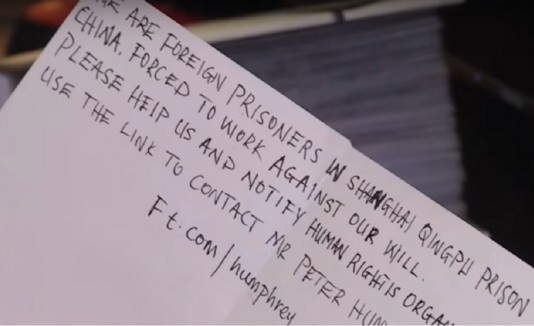 WE ARE FOREIGN PRISONERS IN SHANGHAI QINGPU PRISON
CHINA. FORCED TO WORK AGAINST OUR WILL.
PLEASE HELP US AND NOTIFY HUMAN RIGHTS ORGAN
USE THE LINK TO CONTACT MR PETER HUM
Ft.com/humphrey